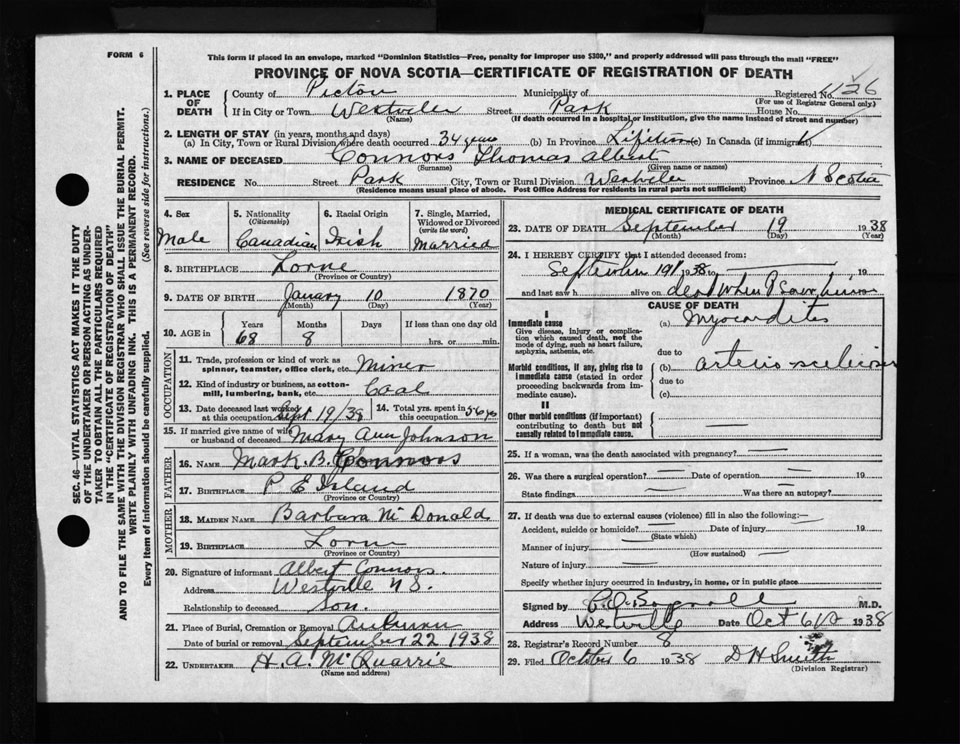 FORM 6
This form if placed in an envelope, marked "Dominion Statistics—Free, penalty for improper use $300," and properly addressed will pass through the mail "FREE"
PROVINCE OF NOVA SCOTIA—CERTIFICATE OF REGISTRATION OF DEATH
1. PLACE OF DEATH County of Pictou Municipality of Registered No. 1126
(For use of Registrar General only)
If in City or Town Westville Street Park House No.
(Name) (If death occurred in a hospital or institution, give the name instead of street and number)
2. LENGTH OF STAY (in years, months and days)
(a) In City, Town or Rural Division where death occurred 34 years (b) In Province Lifetime (c) In Canada (if immigrant)
3. NAME OF DECEASED Connors Thomas Albert
(Surname) (Given name or names)
RESIDENCE No. Street Park City, Town or Rural Division Westville Province N Scotia
(Residence means usual place of abode. Post Office Address for residents in rural parts not sufficient)
4. Sex Male
5. Nationality (Citizenship) Canadian
6. Racial Origin Irish
7. Single, Married, Widowed or Divorced (write the word) Married
8. BIRTHPLACE Lorne
(Province or Country)
9. DATE OF BIRTH January 10 1870
(Month) (Day) (Year)
10. AGE in Years Months Days If less than one day old
68 8 hrs. or min.
OCCUPATION
11. Trade, profession or kind of work as spinner, teamster, office clerk, etc. Miner
12. Kind of industry or business, as cotton-mill, lumbering, bank, etc. Coal
13. Date deceased last worked at this occupation Sept 19/38 14. Total yrs. spent in this occupation 56 yrs
15. If married give name of wife or husband of deceased Mary Ann Johnson
FATHER
16. NAME Mark. B. Connors
17. BIRTHPLACE P E Island
(Province or Country)
MOTHER
18. MAIDEN NAME Barbara McDonald
19. BIRTHPLACE Lorne
(Province or Country)
20. Signature of informant Albert Connors
Address Westville N S.
Relationship to deceased Son.
21. Place of Burial, Cremation or Removal Auburn
Date of burial or removal September 22 1938
22. UNDERTAKER H. A. McQuarrie
(Name and address)
MEDICAL CERTIFICATE OF DEATH
23. DATE OF DEATH September 19 1938
(Month) (Day) (Year)
24. I HEREBY CERTIFY that I attended deceased from:
September 19 1938 to 19
and last saw h alive on dead when I saw him
CAUSE OF DEATH
I
Immediate cause (a) Myocarditis
Give disease, injury or complication which caused death, not the mode of dying, such as heart failure, asphyxia, asthenia, etc.
due to
Morbid conditions, if any, giving rise to immediate cause (stated in order proceeding backwards from immediate cause). (b) arterio sclerosis
due to
(c)
II
Other morbid conditions (if important) contributing to death but not causally related to immediate cause.
25. If a woman, was the death associated with pregnancy?
26. Was there a surgical operation? Date of operation 19
State findings Was there an autopsy?
27. If death was due to external causes (violence) fill in also the following:
Accident, suicide or homicide? Date of injury 19
(State which)
Manner of injury
(How sustained)
Nature of injury
Specify whether injury occurred in industry, in home, or in public place
Signed by M.D.
Address Westville Date Oct 6 1938
28. Registrar's Record Number 8
29. Filed October 6 1938 D H Smith
(Division Registrar)
SEC. 46—VITAL STATISTICS ACT MAKES IT THE DUTY
OF THE UNDERTAKER OR PERSON ACTING AS UNDER-
TAKER TO OBTAIN ALL THE PARTICULARS REQUIRED
IN THE "CERTIFICATE OF REGISTRATION OF DEATH"
AND TO FILE THE SAME WITH THE DIVISION REGISTRAR WHO SHALL ISSUE THE BURIAL PERMIT.
WRITE PLAINLY WITH UNFADING INK. THIS IS A PERMANENT RECORD.
Every item of information should be carefully supplied. (See reverse side for instructions.)